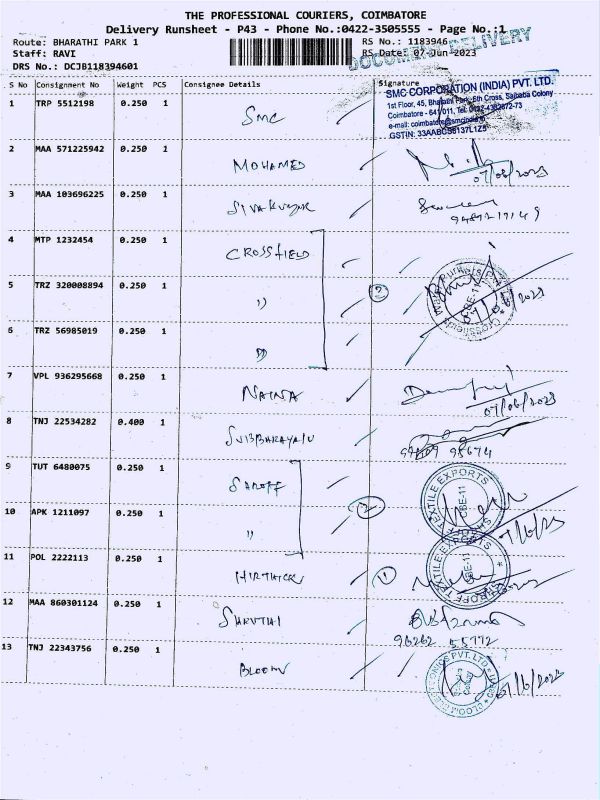 THE PROFESSIONAL COURIERS, COIMBATORE
Delivery Runsheet - P43 - Phone No.:0422-3505555 - Page No.:1
Route: BHARATHI PARK 1 RS No.: 1183946
Staff: RAVI RS Date: 07-Jun-2023
DRS No.: DCJB118394601
DELIVERY
S No Consignment No Weight PCS Consignee Details Signature
SMC CORPORATION (INDIA) PVT. LTD.
1st Floor, 45, Bharathi Park, 6th Cross, Saibaba Colony
1 TRP 5512198 0.250 1 SMC
2 MAA 571225942 0.250 1 MOHAMED
07/06/2023
3 MAA 103696225 0.250 1 SIVAKUMAR
4 MTP 1232454 0.250 1 CROSSFIELD
5 TRZ 320008894 0.250 1 ))
6 TRZ 56985019 0.250 1 ))
7 VPL 936295668 0.250 1 NAINA
07/06/2023
8 TNJ 22534282 0.400 1 SUBBARAYALU
9 TUT 6480075 0.250 1 SAROFF
TEXTILE EXPORTS
CBE-11
10 APK 1211097 0.250 1 ))
11 POL 2222113 0.250 1 HIRTHICK 1
12 MAA 860301124 0.250 1 SHRUTHI
96262 55772
13 TNJ 22343756 0.250 1 BLOOM